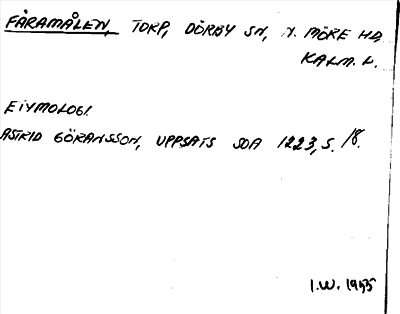 FÅRAMÅLEN, TORP, DÖRBY SN, N. MÖRE HD
KALM. L.
ETYMOLOGI.
ASTRID GÖRANSSON, UPPSATS SOA 1223, S. 18.
I.W. 1975